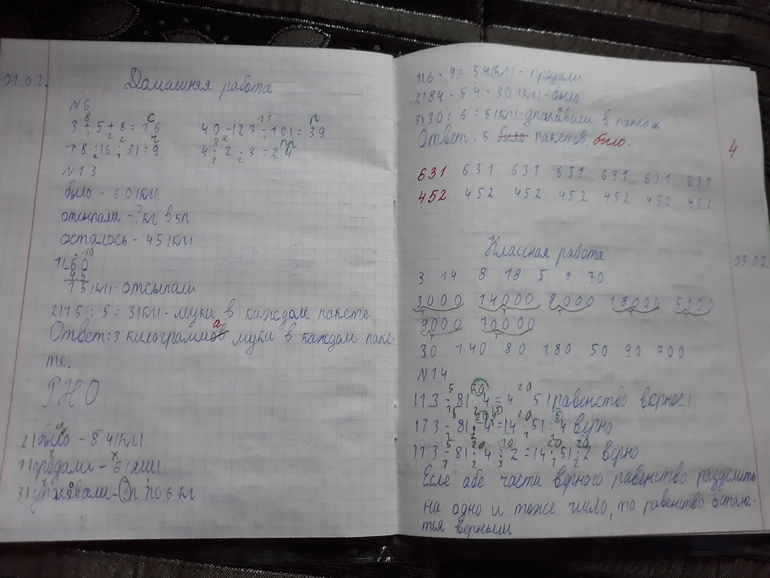 01.02.
Домашняя работа
N 6
3 · 5 + 8 =
40 - 127 - 101 = 39
78 : 16 : 31 = 9
4 : 2 · 3 = 24
N 13
было - 60 (кг)
отсыпали - ? кг в 5п
осталось - 45 (кг)
1) 60
45
15 (кг) - отсыпали
2) 15 : 5 = 3 (кг) - муки в каждом пакете
Ответ: 3 килограмма муки в каждом паке-
те.
РНО
2) было - 84 (кг)
1) продали -
3) упаковали - по 6 кг
1) 6 · 9 = 54 (кг) - продали
2) 84 - 54 = 30 (кг) - было
3) 30 : 6 = 5 (кг) - упаковали в пакеты
Ответ: 5 было пакетов было.
4
631 631 631 631 631 631 631
452 452 452 452 452 452 452
Классная работа
03.02.
3 14 8 18 5 9 70
3000 14000 8000 18000 5000
9000 70000
30 140 80 180 50 90 700
N 14
1) 73 - 81 : 4 = 4 · 5 (равенство верное)
173 - 81 : 4 = 14 · 51 : 4 верно
1) 73 - 81 : 4 : 2 = 14 · 51 : 2 верно
Если обе части верного равенство разделить
на одно и тоже число, то равенство остане-
тся верным